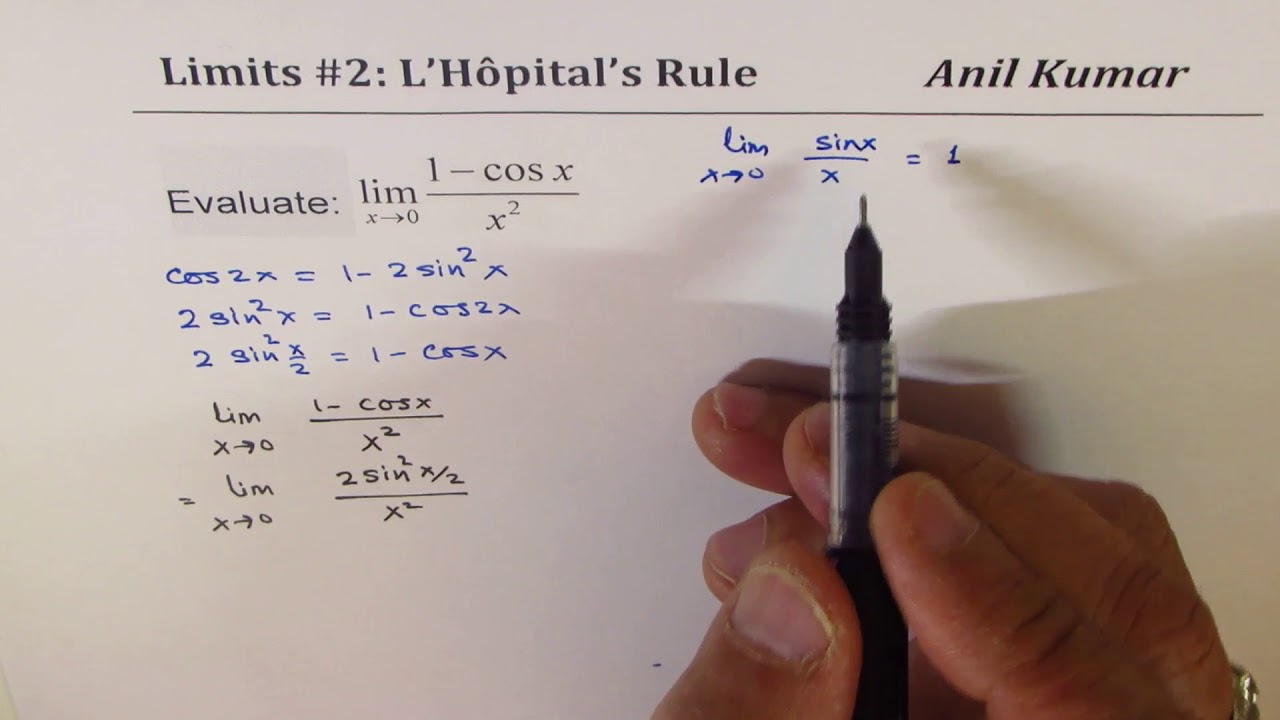 Limits #2: L'Hôpital's Rule Anil Kumar
Evaluate: lim x→0 (1 − cos x)/x²
lim x→0 sinx/x = 1
cos2x = 1 - 2sin²x
2sin²x = 1 - cos2x
2 sin² x/2 = 1 - cosx
lim x→0 (1 - cosx)/x²
= lim x→0 (2sin² x/2)/x²